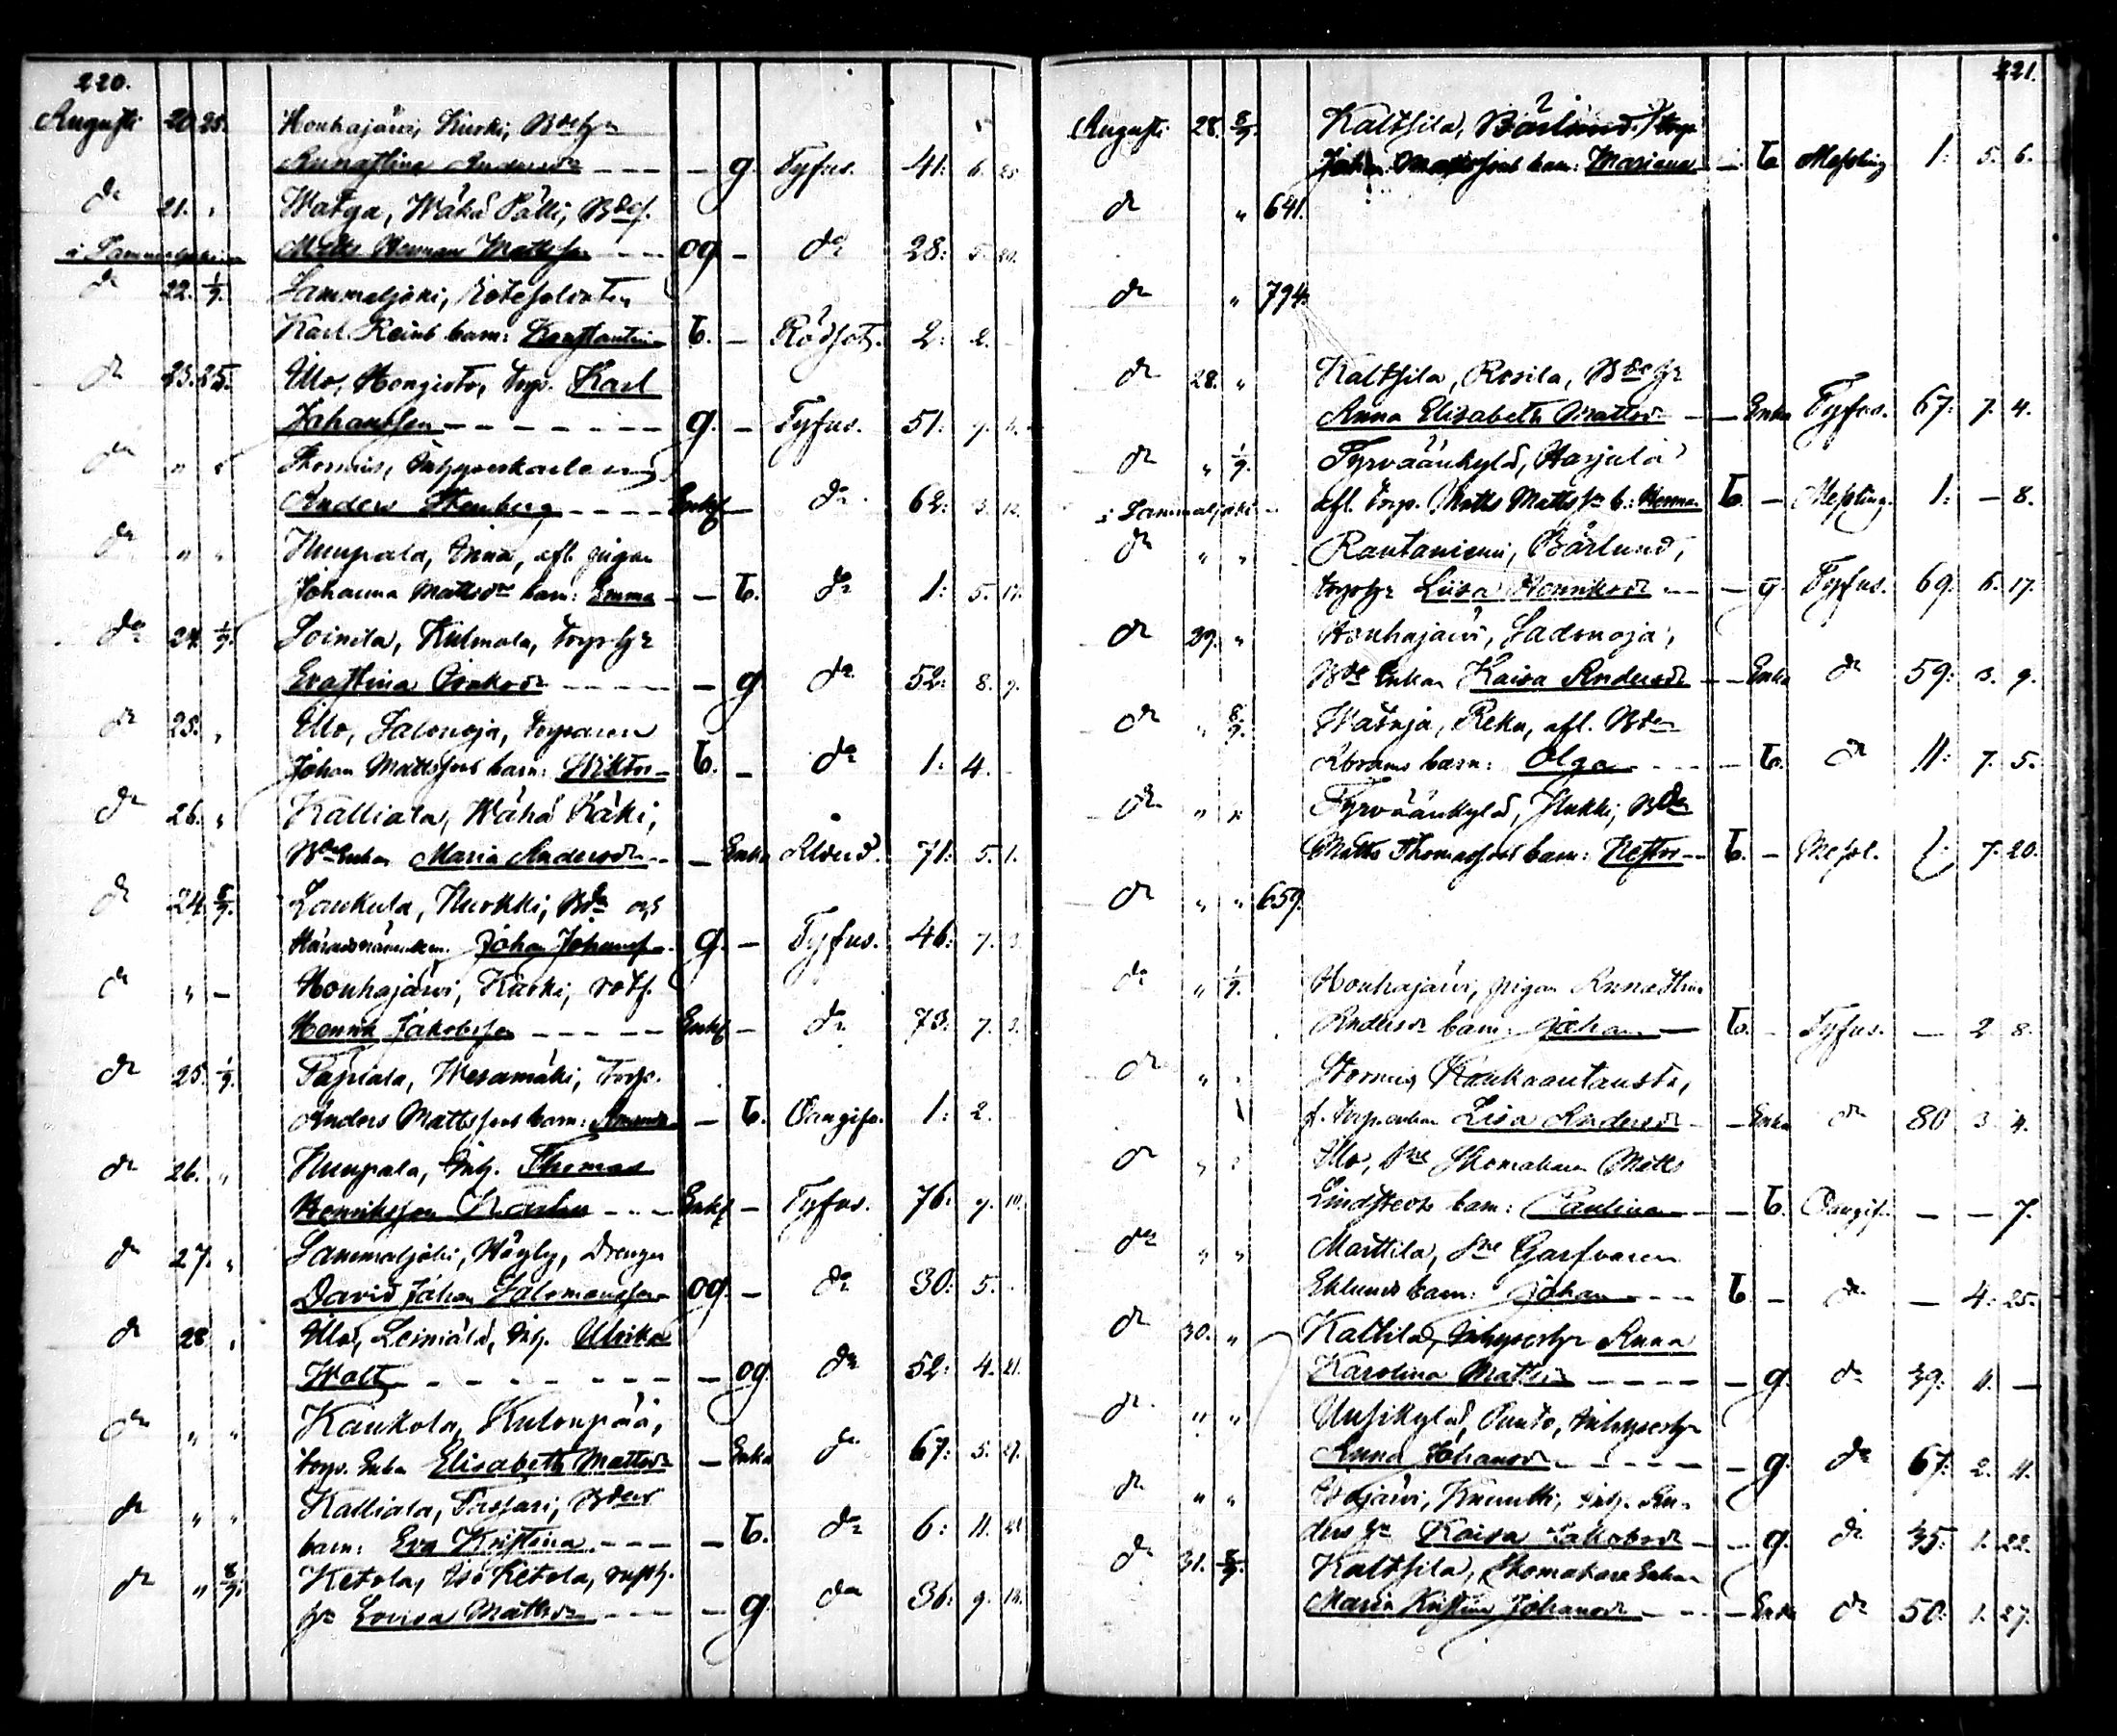 220.
Augusti 20. 25. Houhajärvi, Kurki, Bdehu
Annastina Andersdr - - - - g. Tyfus. 41: 6.
do 21. " Watya, Wähä Pälli, Bdes.
i Sammaljoki Matts Herman Mattsson - - - og - do 28: 5.
do 22. 1/9. Sammaljoki, Rotesoldaten
Karl Reins barn: Konstantin b. - Rödsot. 2: 2.
do 23. 25. Illo, Hongisto, torp. Karl
Johansson - - - - - - g. - Tyfus. 51: 9.
do " " Stormis, Inhyseskarlen
Anders Stenberg - - - - Enkl - do 62: 3. 12.
do " " Nuupala, afl. pigan
Johanna Mattsdr barn: Emma - - b. do 1: 5. 17.
do 24. 1/9. Soinila, Kulmala, torp.hu
Evastina Isaksdr - - - - - g do 52: 8. 9.
do 25. " Illo, Salonoja, torparen
Johan Mattssons barn: Wiktor - b. - do 1: 4. -
do 26. " Kalliala, Wähä Käki,
Bde Enkan Maria Andersdr - - - Enka Ålderd. 71: 5. 1.
do 24. 8/9. Laukula, Nurkki, Bdn och
Häradsnämndem. Johan Johansson g. - Tyfus. 46: 7. 3.
do " - Houhajärvi, Kurki, rotf.
Henrik Jakobsson - - - - - Enkl - do 73: 7. 3.
do 25. 1/9. Tapiala, Wesamäki, torp.
Anders Mattssons barn: Amanda - b. Oangifv. 1: 2.
do 26. " Nuupala, Inh. Thomas
Henriksson - - - Enkl - Tyfus. 76: 9. 10.
do 27. " Sammaljoki, Högby, Drengen
David Johan Salomonsson og. - do 30: 5. -
do 28 " Illo, Leiniälä, Inh. Ulrika
Walt - - - - - - - - og do 52: 4. 21.
do " " Kaukola, Kulonpää,
torp. Enka Elisabeth Mattsdr - Enka do 67: 5. 27.
do " " Kalliala, Bdens
barn: Eva Kristina - - - - b. do 6: 11.
do " 8/9. Ketola, Iso Ketola,
hu Lovisa Mattsdr - - - - g. do 36: 9. 14.
221.
Augusti 28. 8/9. Kaltsila, Bärlund, torp.
Johan Mattssons barn: Mariana - b Messling 1: 5. 6.
do " 641.
do " 794.
do 28. " Kaltsila, Rosila, Bdehu
Anna Elisabeth Mattsdr - - Enka Tyfus. 67: 7. 4.
do " 1/9. Tyrväänkylä, Harjula
i Sammaljoki - afl. torp. Matts Mattsson b.: Herman b. - Messling. 1: - 8.
do " " Rautaniemi, Bärlund,
torphu Liisa Henriksdr - - - g. Tyfus. 69: 6. 17.
do 29. " Houhajärvi, Sadonoja,
Bde Enkan Kaisa Andersdr - - Enka do 59: 3. 9.
do " 8/9. Watnja, Reku, afl. Bden
Abrams barn: Olga - - - - b. do 11: 7. 5.
do " " Tyrväänkylä, Nukki, Bden
Matts Thomassons barn: Nestor - - b. - Messl. 1: 7. 20.
do " " 659.
do " 1/9. Houhajärvi, pigan Annastina
Andersdr barn: Johan - b. - Tyfus. - 2. 8.
do " " Stormis, Koukaantausta,
f. torp. enkan Lisa Andersdr - - Enka do 80 3. 4.
do " " Illo, Skomakaren Matts
Lindstedts barn: Paulina - - b. Oangif. - - 7.
do " " Marttila, Garfvaren
Eklunds barn: Johan - - - b - do - 4. 25.
do 30. " Kaltila, Inhyseshu Anna
Karolina Mattsdr - - - - - g. do 39: 11. -
do " " Uusikylä, Punto, Inhyseshu
Anna Johansdr - - - - - - g. do 67: 2. 11.
do " " Knuutti, Inh. An-
ders hu Kaisa Jakobsdr - - g. do 35: 1. 22.
do 31. 8/9. Kaltsila, Skomakare Enkan
Maria Kristina Johansdr - - - Enka do 50: 1. 27.